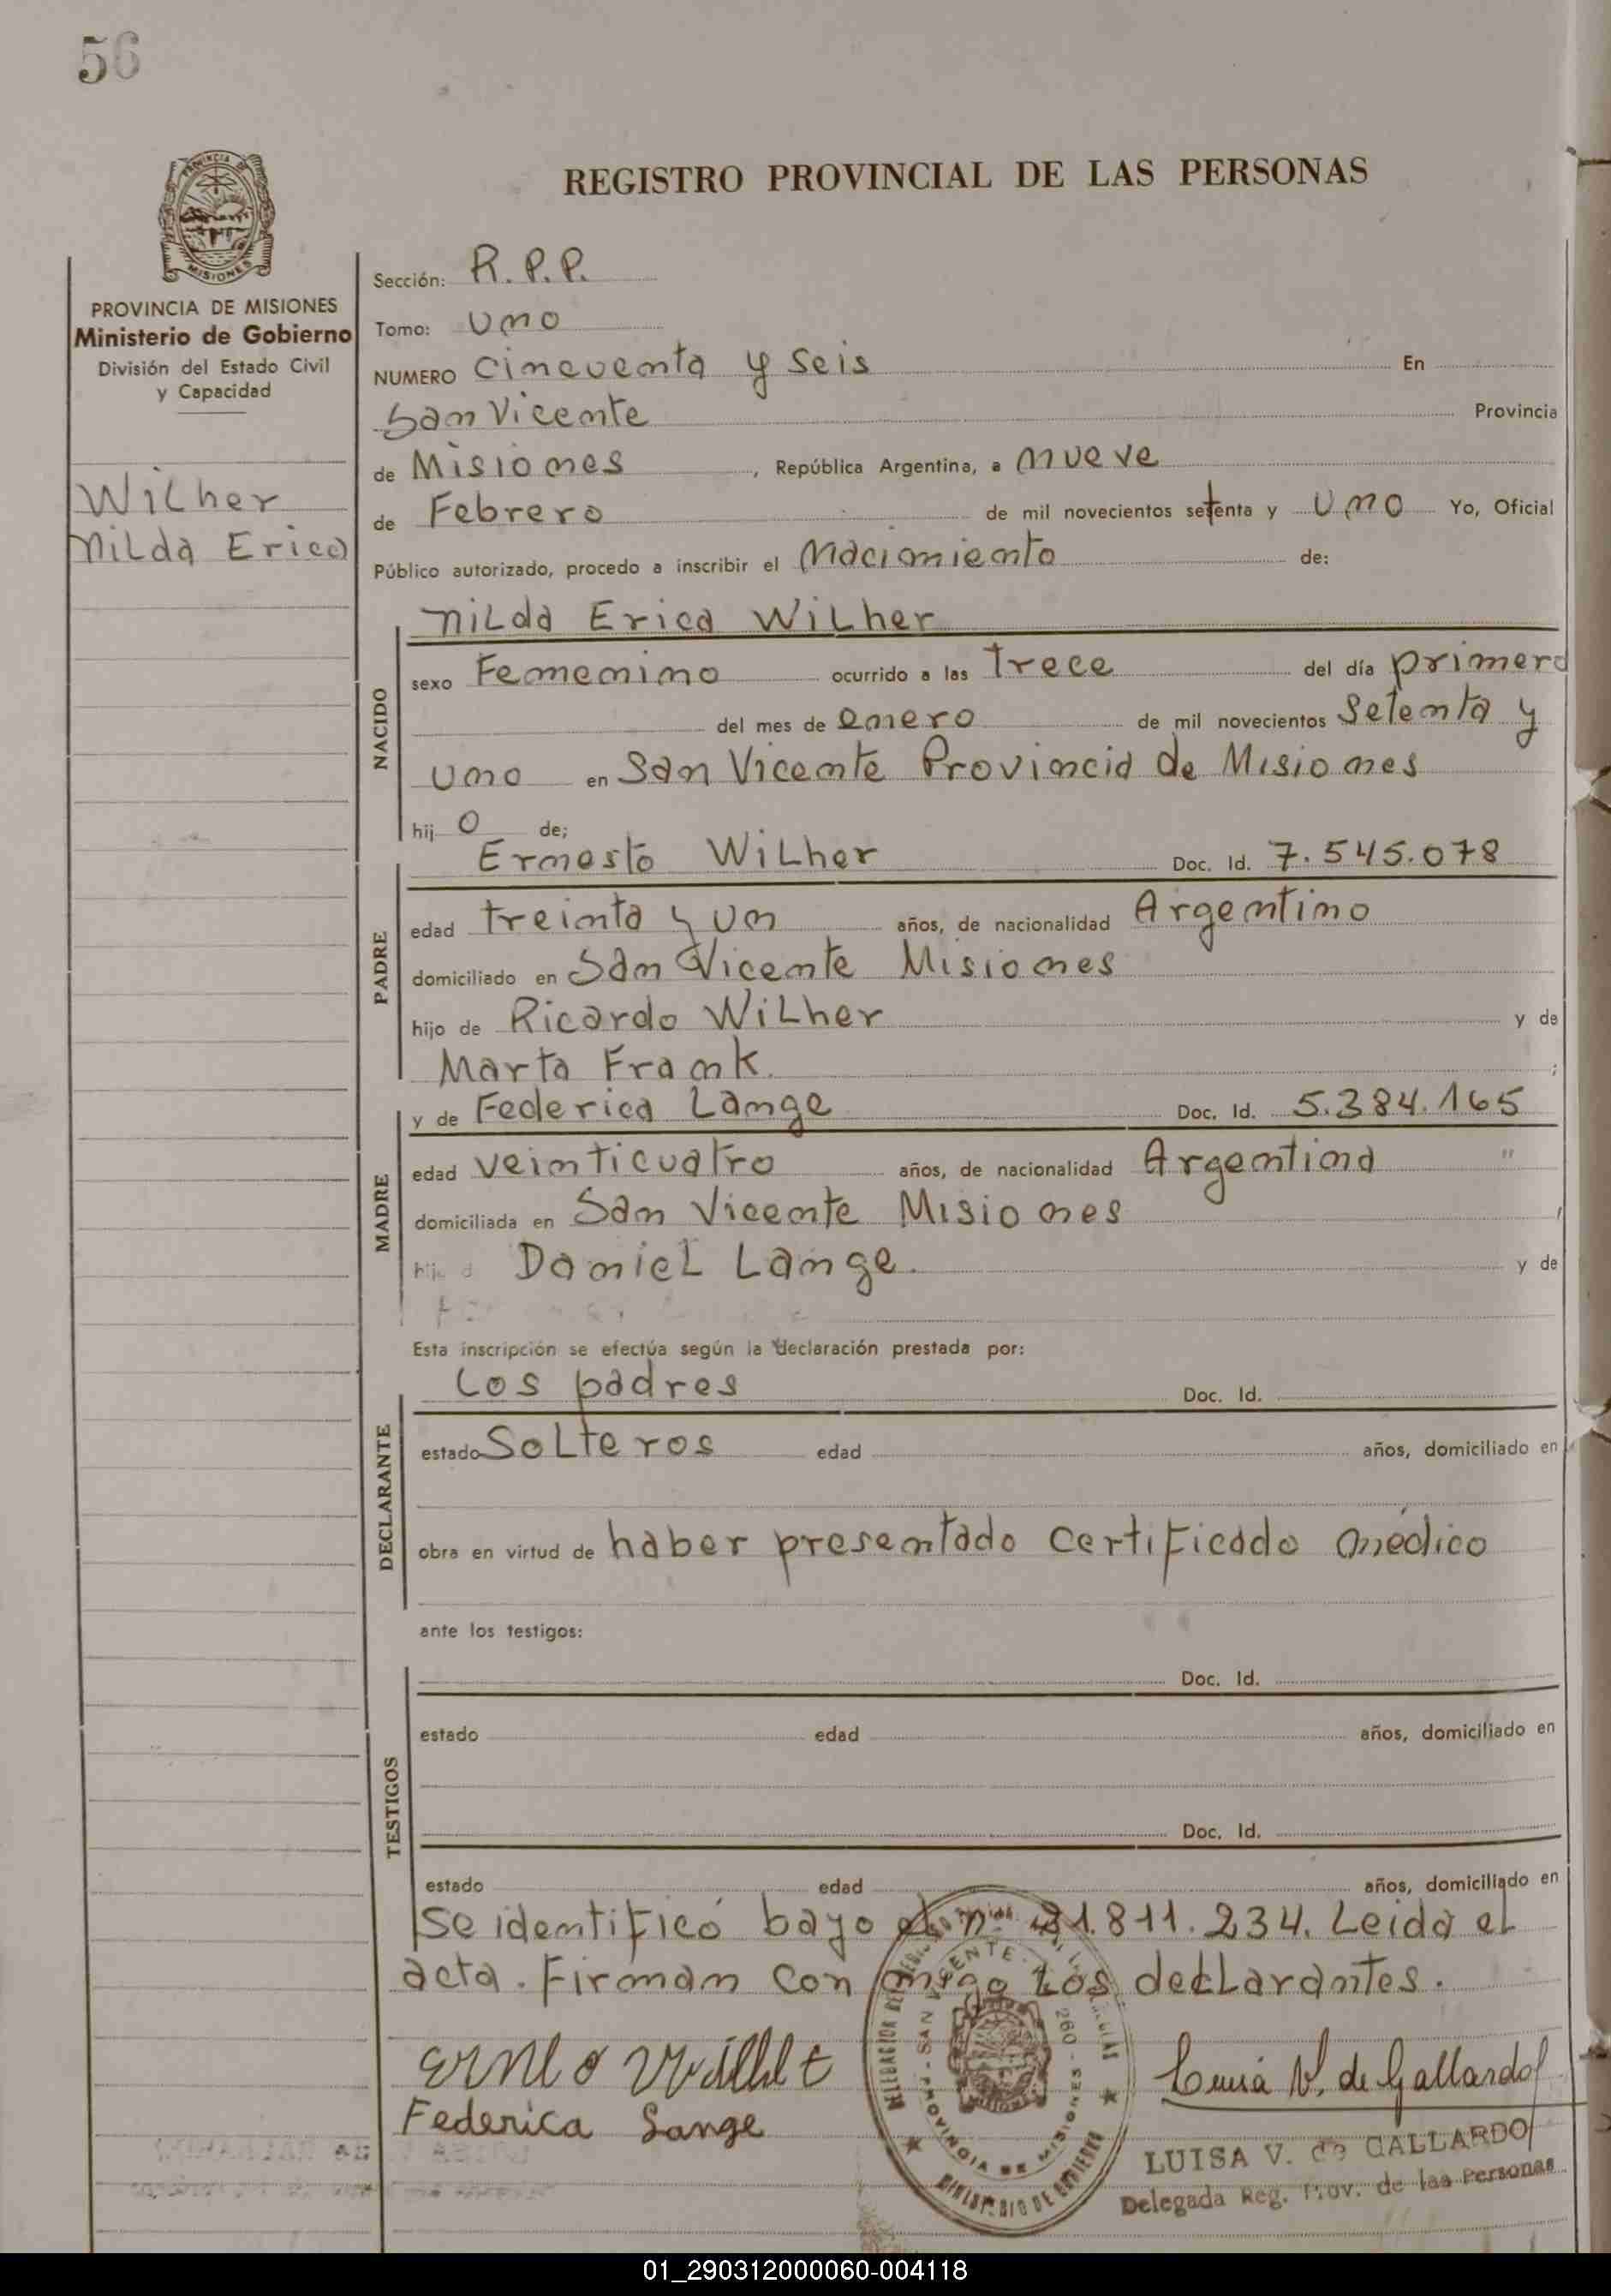 56
REGISTRO PROVINCIAL DE LAS PERSONAS
PROVINCIA DE
MISIONES
PROVINCIA DE MISIONES
Ministerio de Gobierno
División del Estado Civil
y Capacidad
Wilher
Nilda Erica
Sección: R.P.P.
Tomo: Uno
NUMERO Cincuenta y Seis En
San Vicente Provincia
de Misiones, República Argentina, a nueve
de Febrero de mil novecientos setenta y uno Yo, Oficial
Público autorizado, procedo a inscribir el Nacimiento de:
NACIDO
Nilda Erica Wilher
sexo Femenino ocurrido a las Trece del día primero
del mes de enero de mil novecientos Setenta y
uno en San Vicente Provincia de Misiones
hij o de;
PADRE
Ernesto Wilher Doc. Id. 7.545.078
edad treinta y un años, de nacionalidad Argentino
domiciliado en San Vicente Misiones
hijo de Ricardo Wilher y de
Marta Frank. ;
MADRE
y de Federica Lange Doc. Id. 5.384.165
edad veinticuatro años, de nacionalidad Argentina "
domiciliada en San Vicente Misiones
hij d Daniel Lange. y de
Esta inscripción se efectúa según la declaración prestada por:
DECLARANTE
Los padres Doc. Id.
estado Solteros edad años, domiciliado en
obra en virtud de haber presentado certificado médico
ante los testigos:
TESTIGOS
Doc. Id.
estado edad años, domiciliado en
Doc. Id.
estado edad años, domiciliado en
Se identificó bajo el nº 21.811.234. Leida el
acta. Firman con migo Los declarantes.
Federica Lange
Luisa V. de Gallardo
LUISA V. de GALLARDO
Delegada Reg. Prov. de las Personas
SAN VICENTE
260
PROVINCIA DE MISIONES
MINISTERIO DE GOBIERNO
01_290312000060-004118